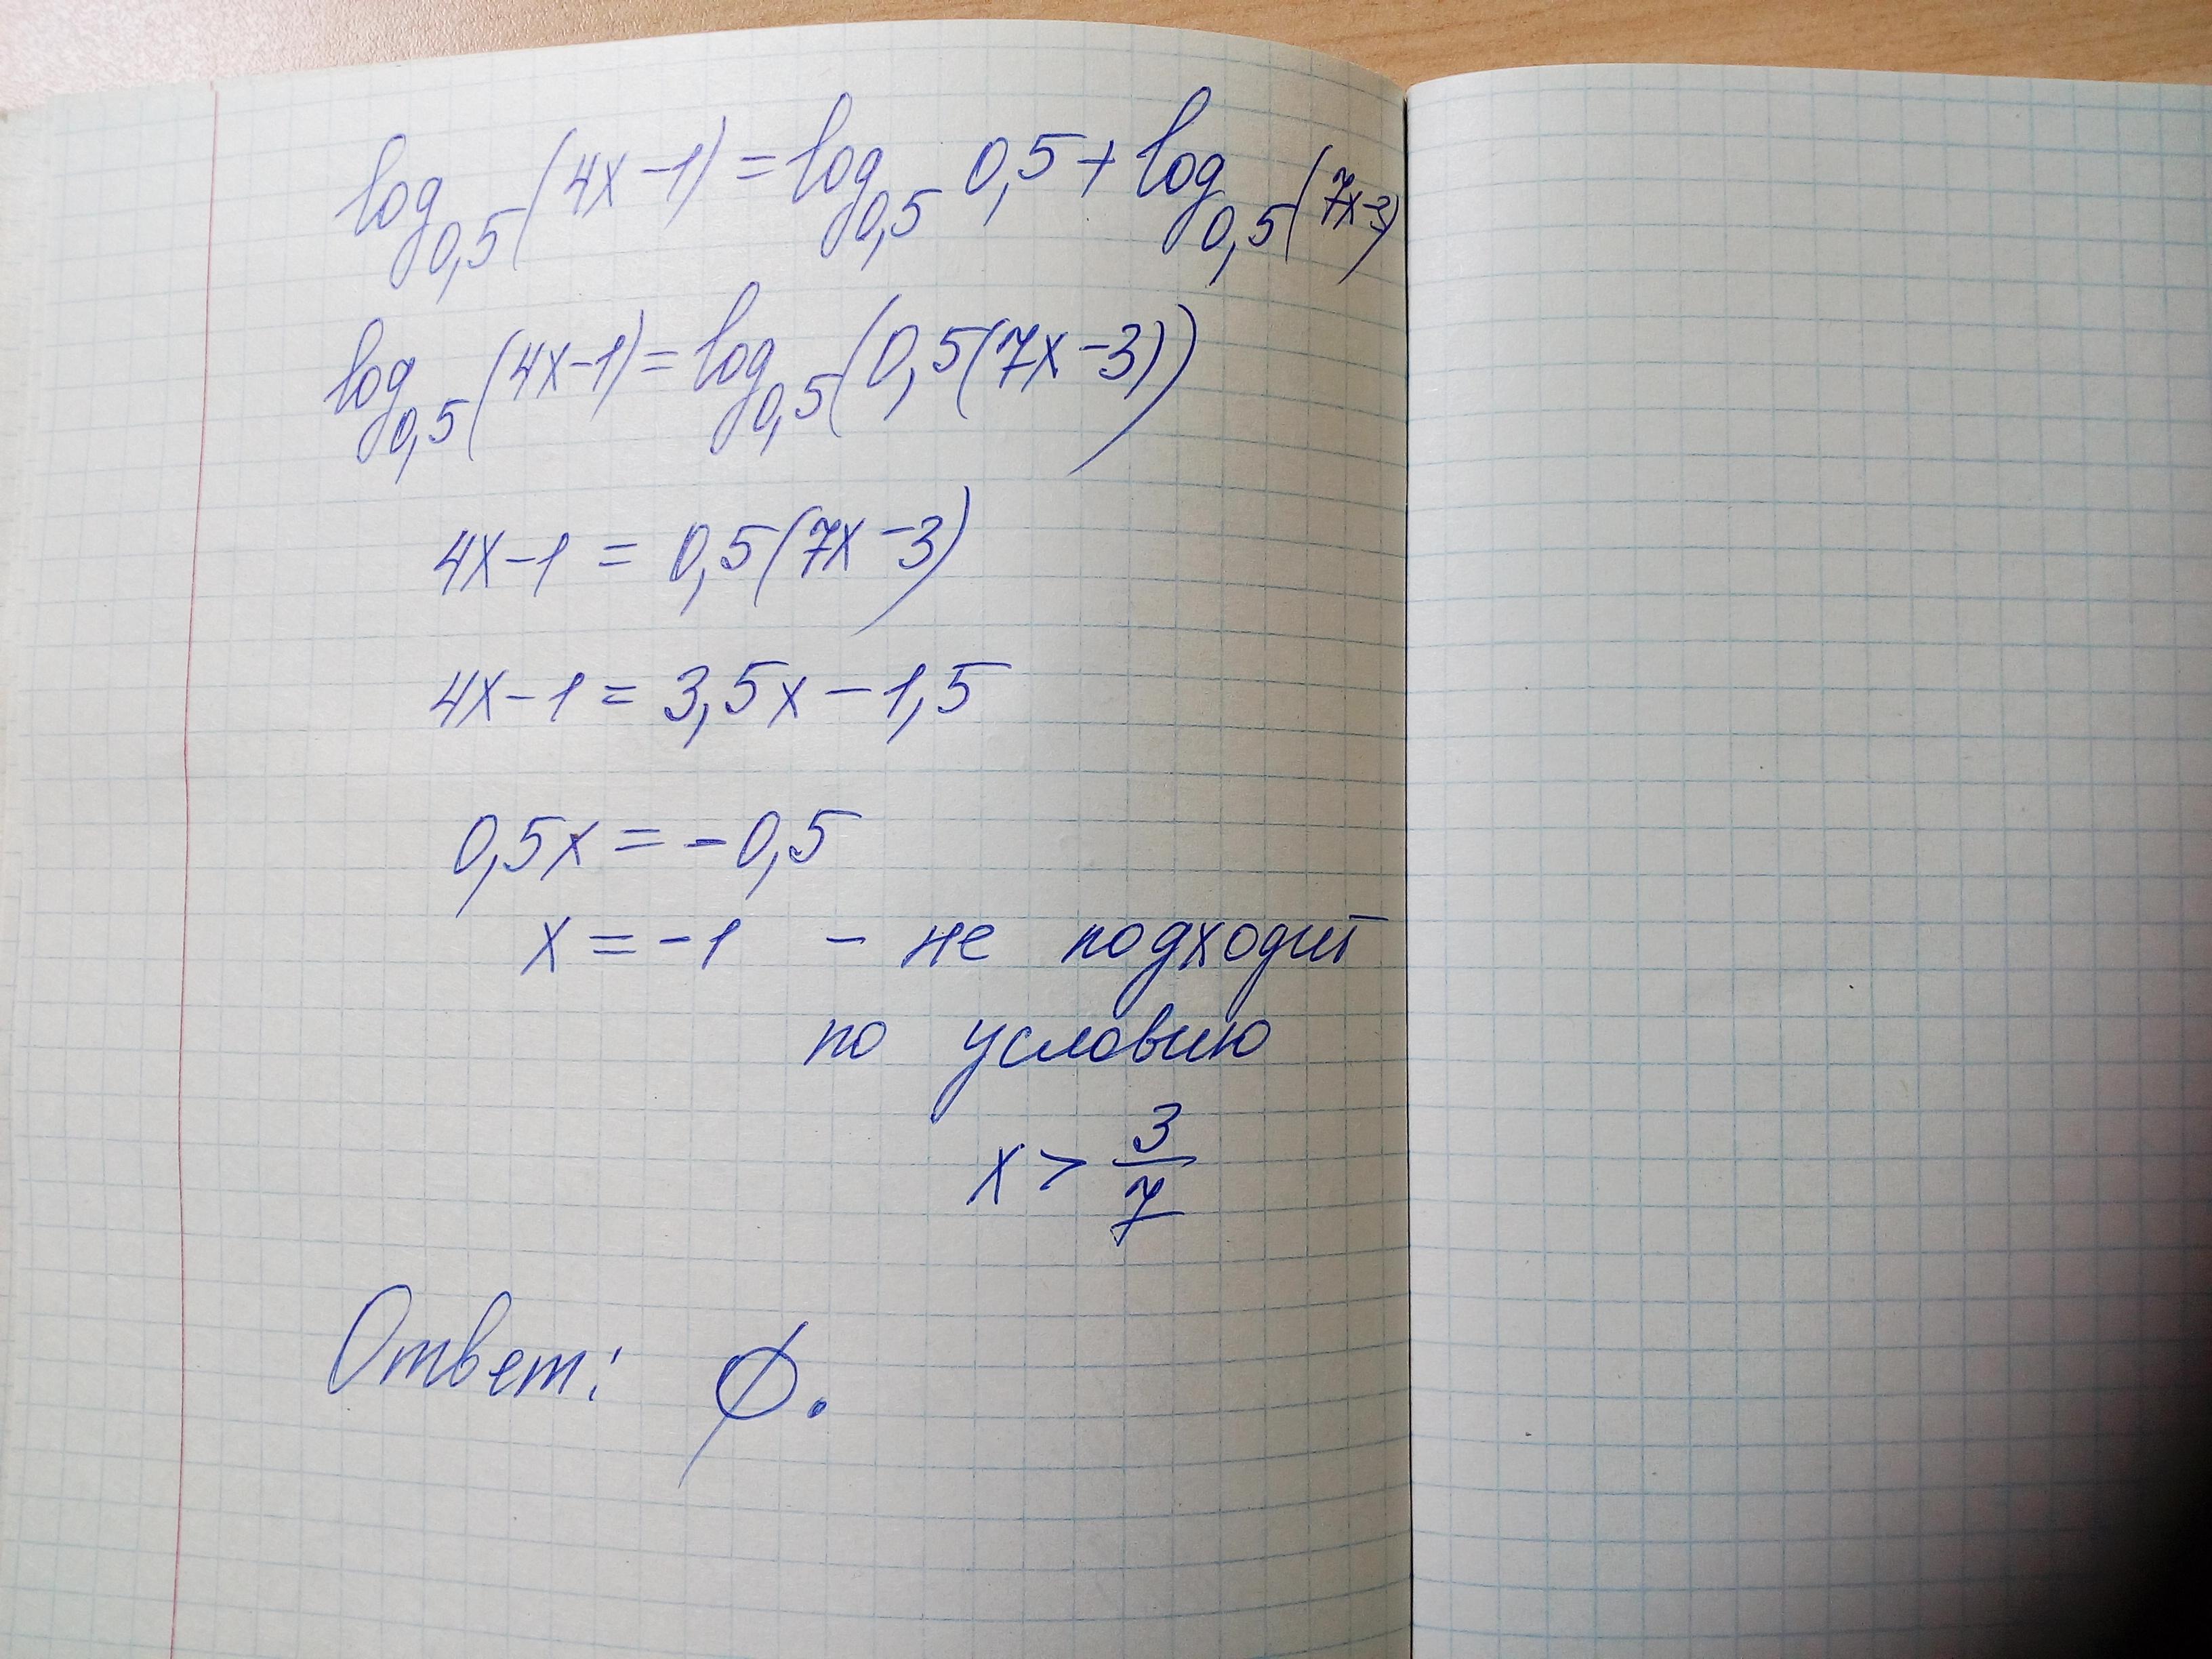 log₀,₅(4x-1) = log₀,₅ 0,5 + log₀,₅(7x-3)
log₀,₅(4x-1) = log₀,₅(0,5(7x-3))
4x-1 = 0,5(7x-3)
4x-1 = 3,5x-1,5
0,5x = -0,5
x = -1 - не подходит
по условию
x > 3/7
Ответ: ∅.